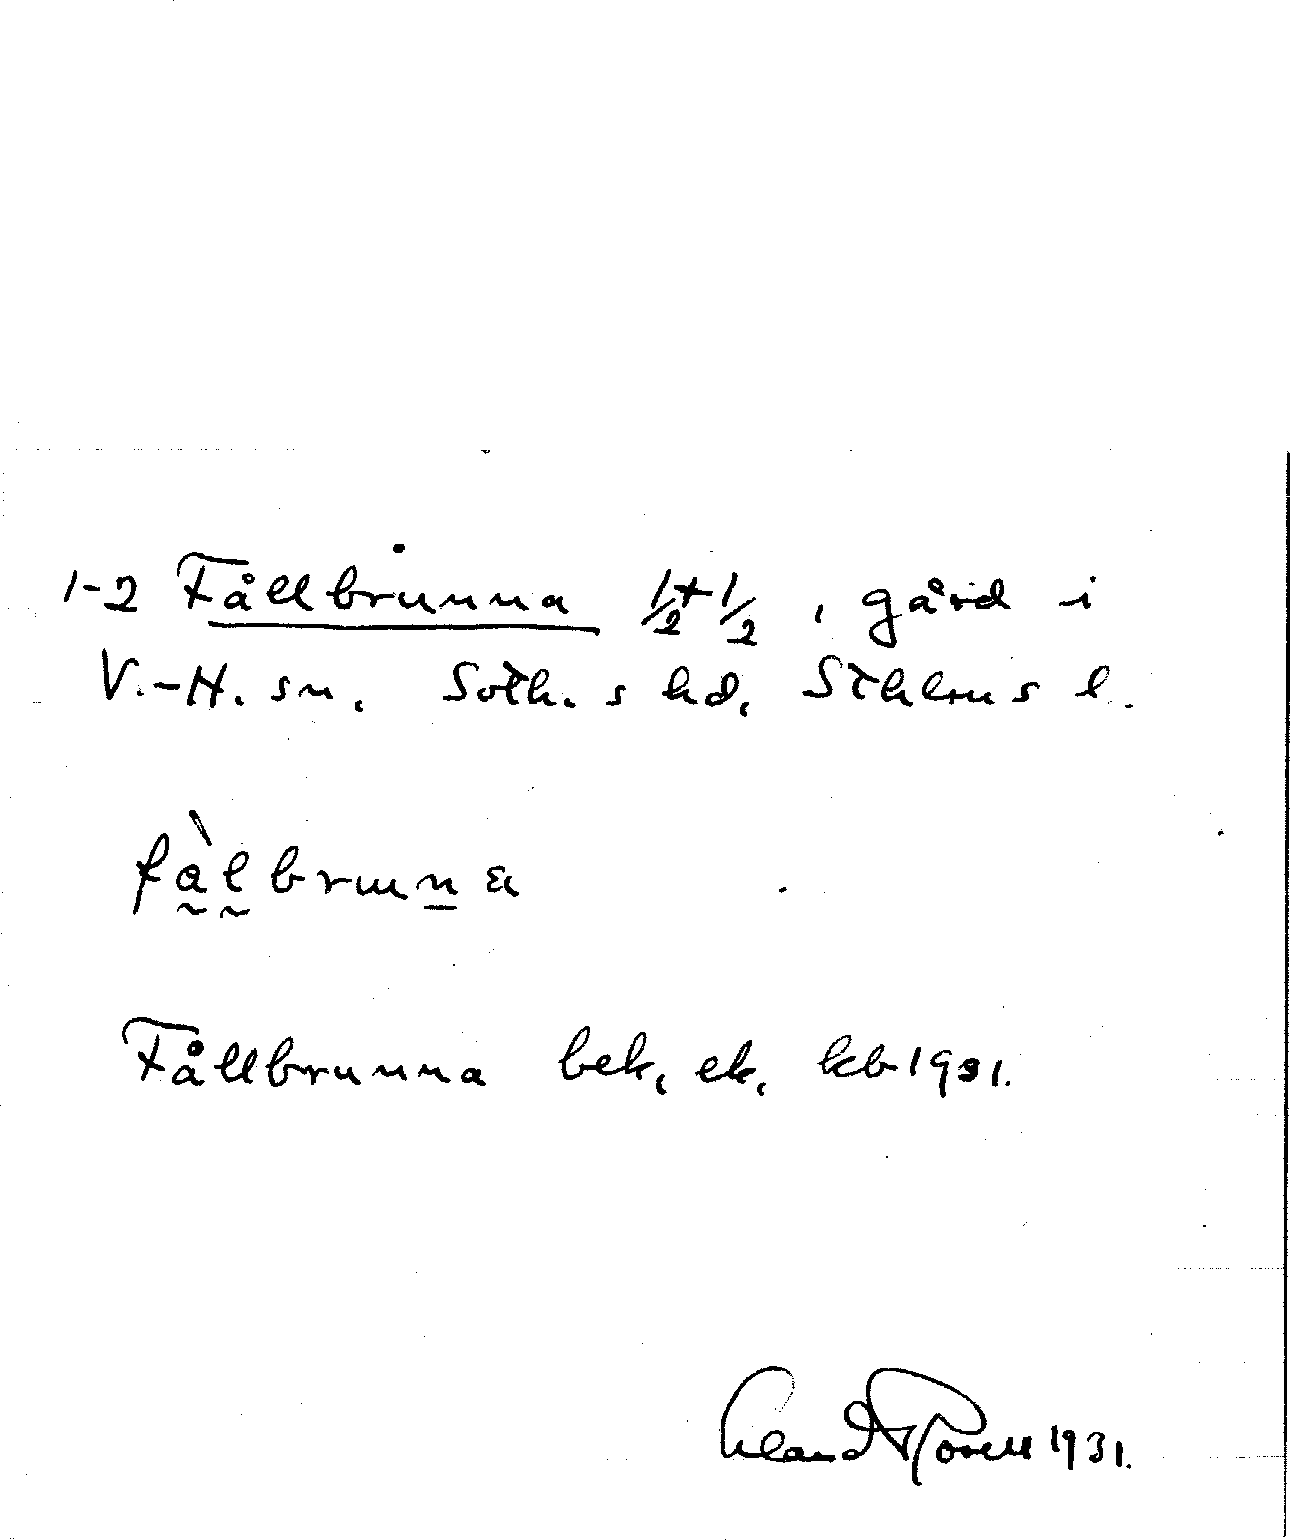 1-2 Fållbrunna 1/2+1/2, gård i
V.-H. sn. Soth.s hd, Sthlms l.
fàlbrunna
Fållbrunna bek, ek, kb 1931.
1931.